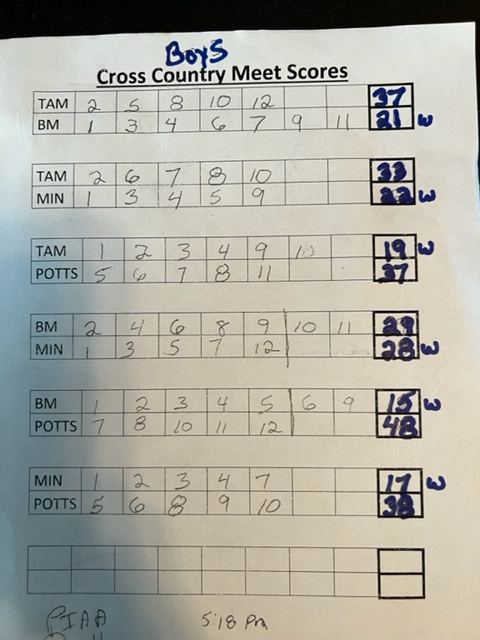 Boys
Cross Country Meet Scores
TAM 2 5 8 10 12 37
BM 1 3 4 6 7 9 11 21 W
TAM 2 6 7 8 10 33
MIN 1 3 4 5 9 22 W
TAM 1 2 3 4 9 10 19 W
POTTS 5 6 7 8 11 37
BM 2 4 6 8 9 10 11 29
MIN 1 3 5 7 12 28 W
BM 1 2 3 4 5 6 9 15 W
POTTS 7 8 10 11 12 48
MIN 1 2 3 4 7 17 W
POTTS 5 6 8 9 10 38
PIAA 5:18 Pm